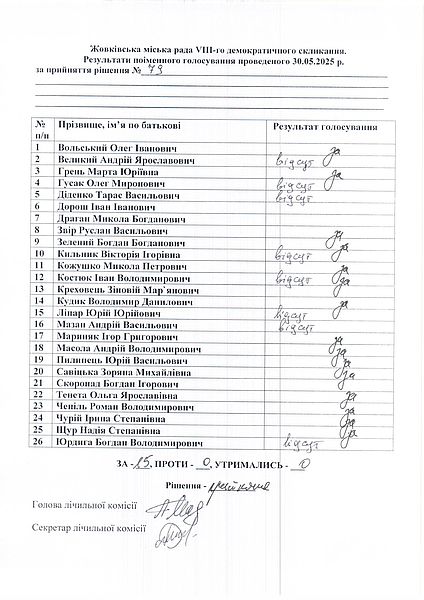 Жовківська міська рада VIII-го демократичного скликання.
Результати поіменного голосування проведеного 30.05.2025 р.
за прийняття рішення № 79
№ п/п Прізвище, ім’я по батькові Результат голосування
1 Вольський Олег Іванович за
2 Великий Андрій Ярославович відсут
3 Грень Марта Юріївна за
4 Гусак Олег Миронович відсут
5 Діденко Тарас Васильович відсут
6 Дорош Іван Іванович
7 Драган Микола Богданович
8 Звір Руслан Васильович за
9 Зелений Богдан Богданович за
10 Кильник Вікторія Ігорівна відсут
11 Кожушко Микола Петрович за
12 Костюк Іван Володимирович відсут
13 Креховець Зіновій Мар`янович за
14 Кудик Володимир Данилович за
15 Ліпар Юрій Юрійович відсут
16 Мазан Андрій Васильович відсут
17 Мариняк Ігор Григорович за
18 Масола Андрій Володимирович за
19 Пилипець Юрій Васильович за
20 Савіцька Зоряна Михайлівна за
21 Скоропад Богдан Ігорович
22 Тенета Ольга Ярославівна за
23 Чепіль Роман Володимирович за
24 Чурій Ірина Степанівна за
25 Щур Надія Степанівна за
26 Юрдига Богдан Володимирович відсут
ЗА - 15, ПРОТИ - 0, УТРИМАЛИСЬ - 0
Рішення - прийняте
Голова лічильної комісії
Секретар лічильної комісії